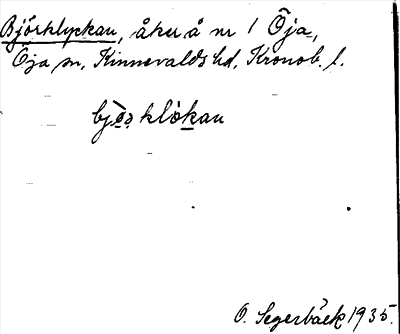 Björklyckan, åker å nr 1 Öja,
Öja sn, Kinnevalds hd, Kronob. l.
bjö̀rklò̱kan
O. Segerbäck 1935.